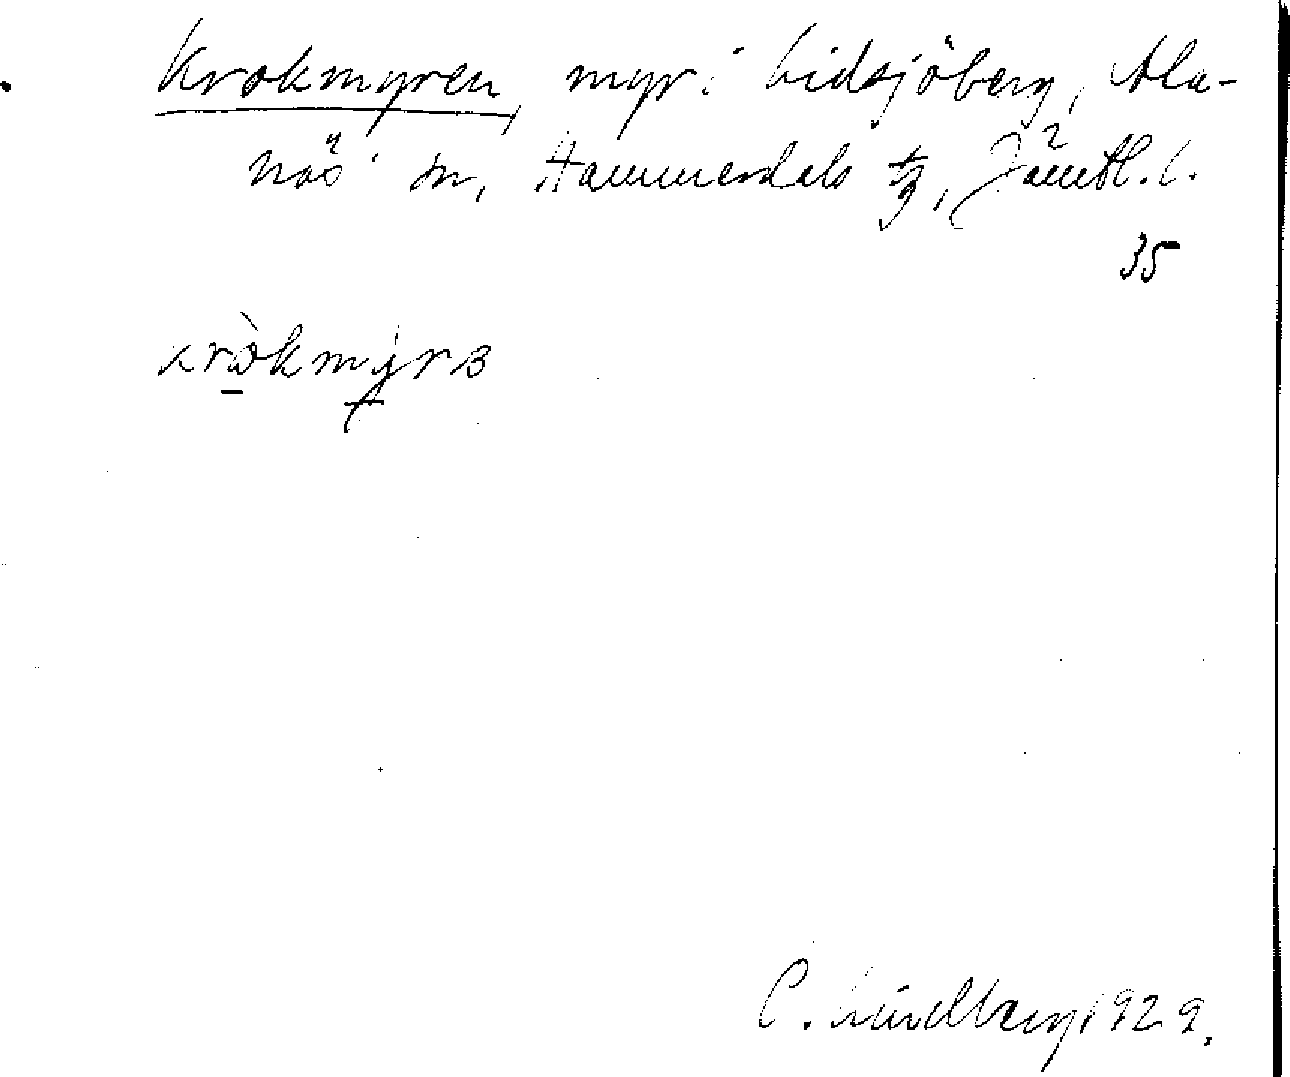 Krokmyren, myr i Lidsjöberg, Ala-
näs sn, Hammerdals tg, Jämtl. l.
35
kròkmyrɜ
C. Lindberg 1929.